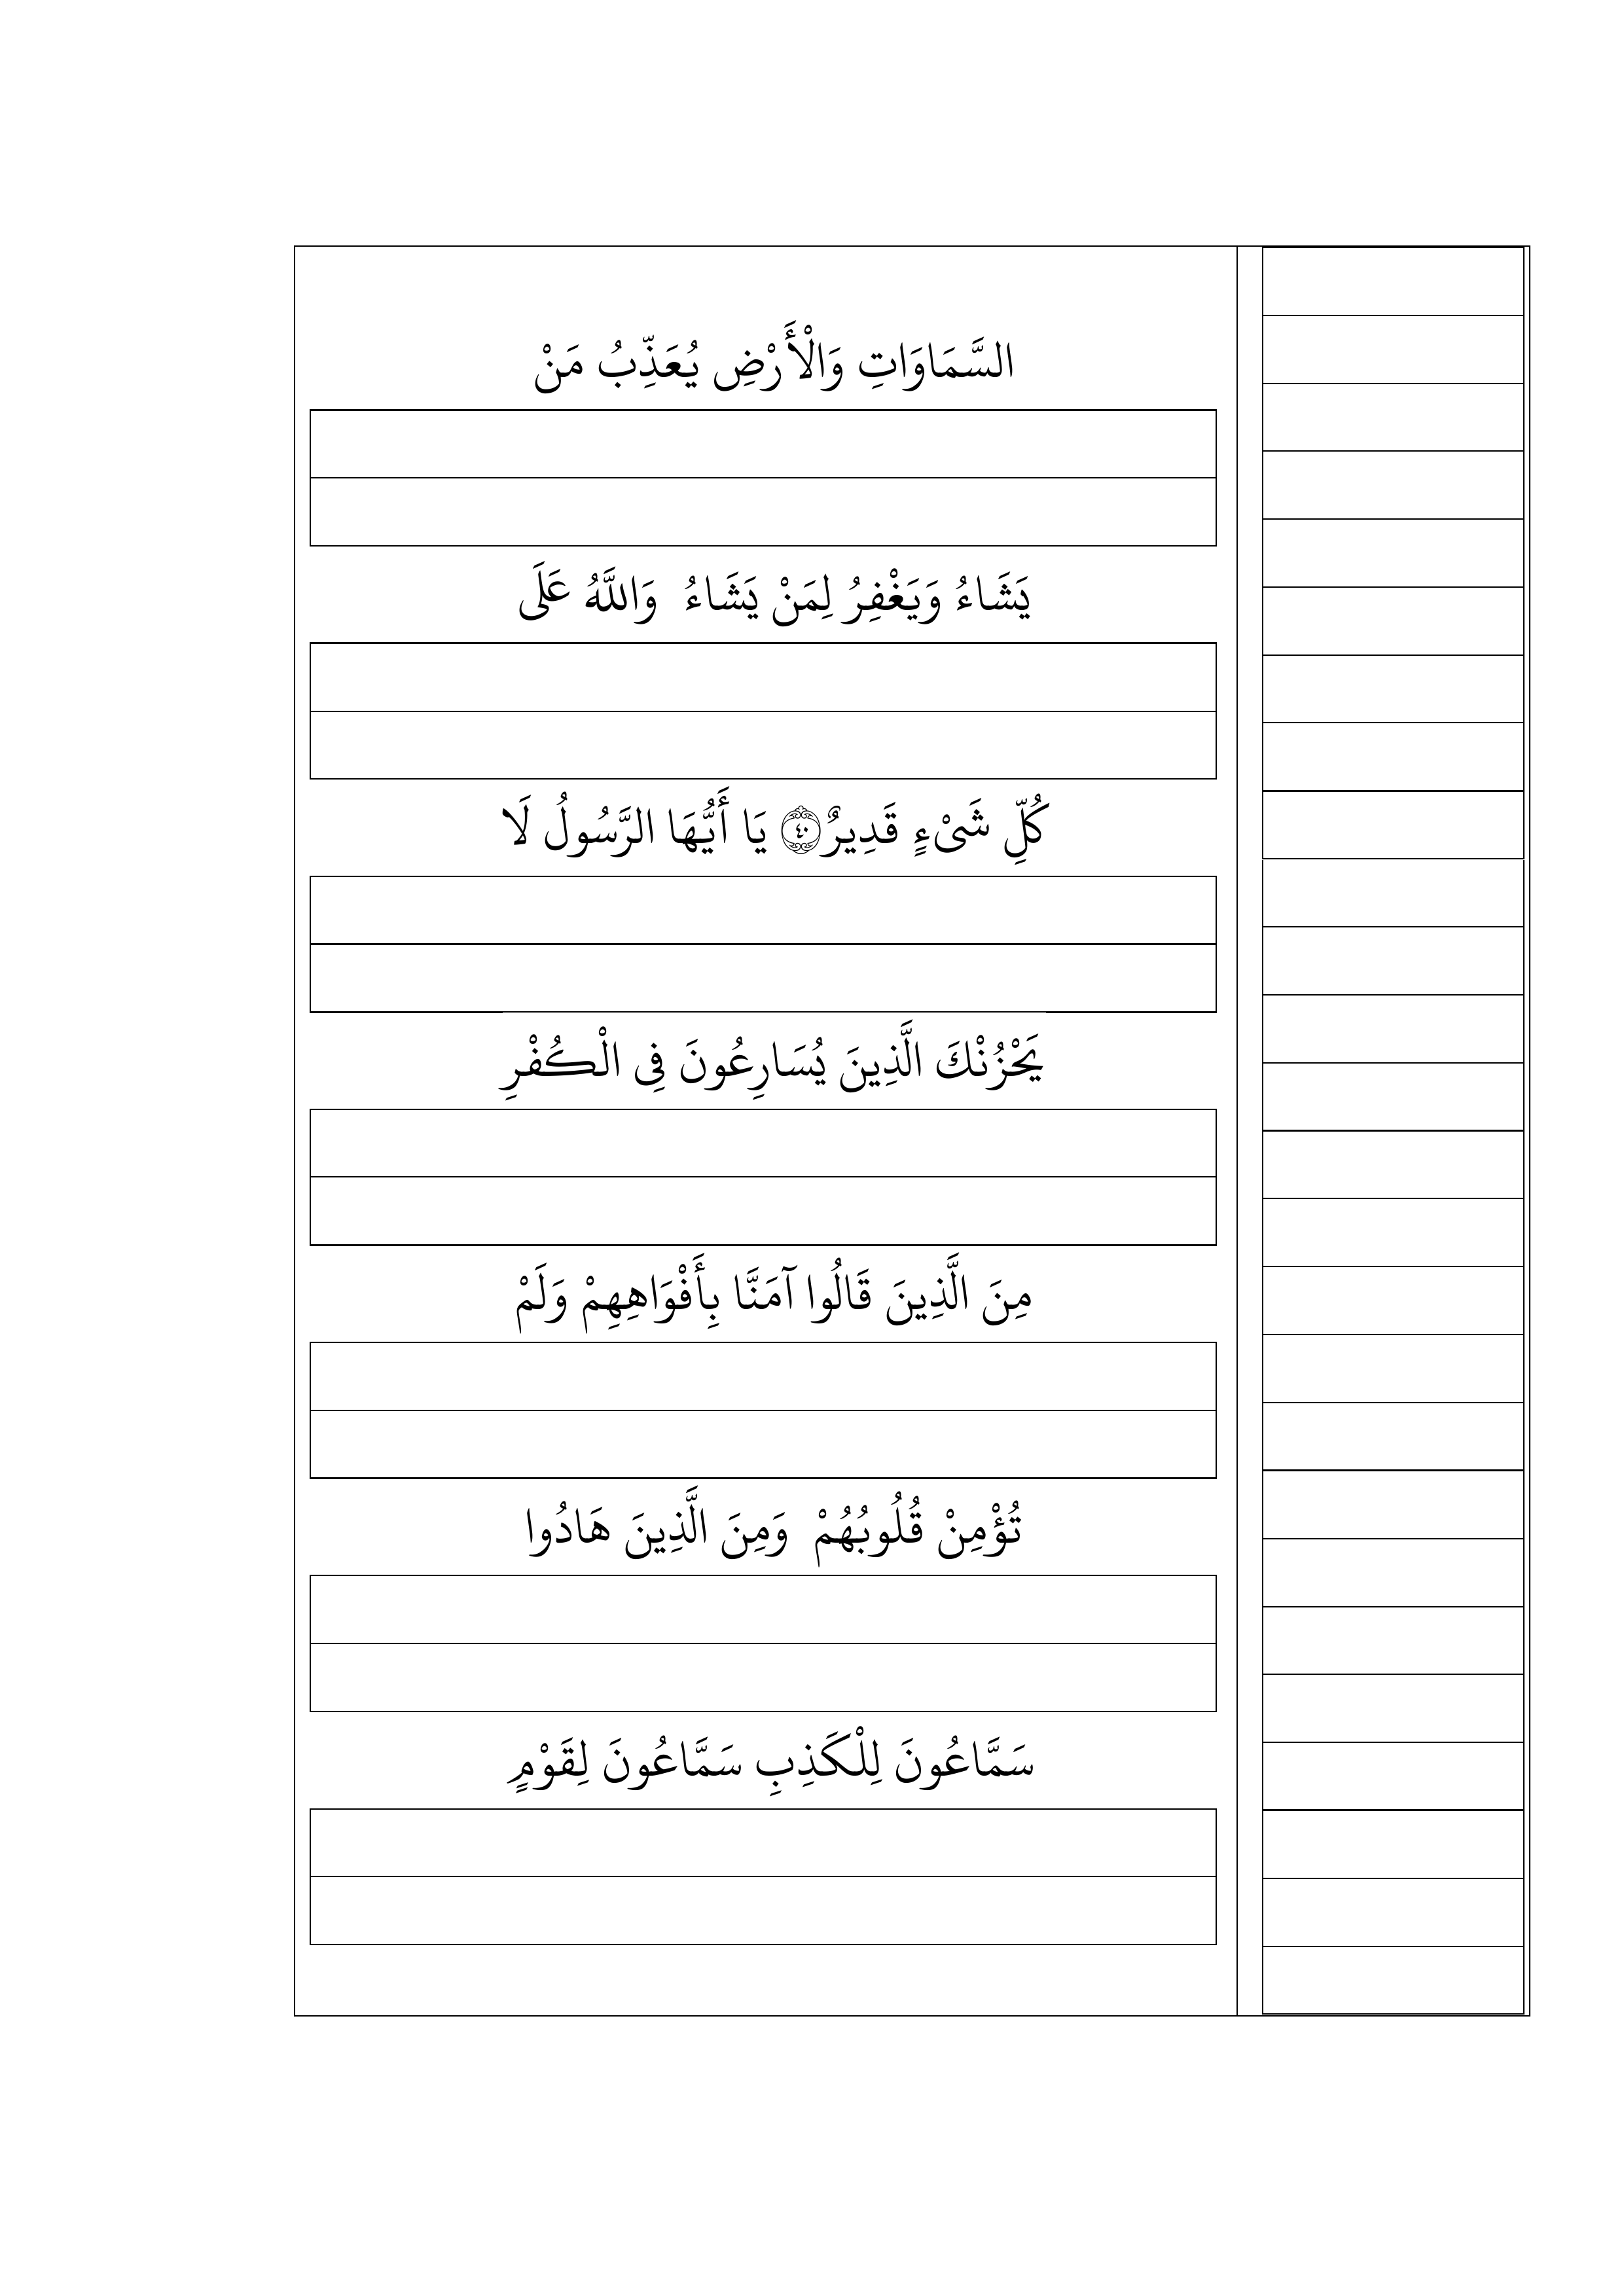 السَّمَاوَاتِ وَالْأَرْضِ يُعَذِّبُ مَنْ
يَشَاءُ وَيَغْفِرُ لِمَنْ يَشَاءُ وَاللَّهُ عَلَى
كُلِّ شَىْءٍ قَدِيرٌ ۝٤٠ يَا أَيُّهَا الرَّسُولُ لَا
يَحْزُنْكَ الَّذِينَ يُسَارِعُونَ فِى الْكُفْرِ
مِنَ الَّذِينَ قَالُوا آمَنَّا بِأَفْوَاهِهِمْ وَلَمْ
تُؤْمِنْ قُلُوبُهُمْ وَمِنَ الَّذِينَ هَادُوا
سَمَّاعُونَ لِلْكَذِبِ سَمَّاعُونَ لِقَوْمٍ